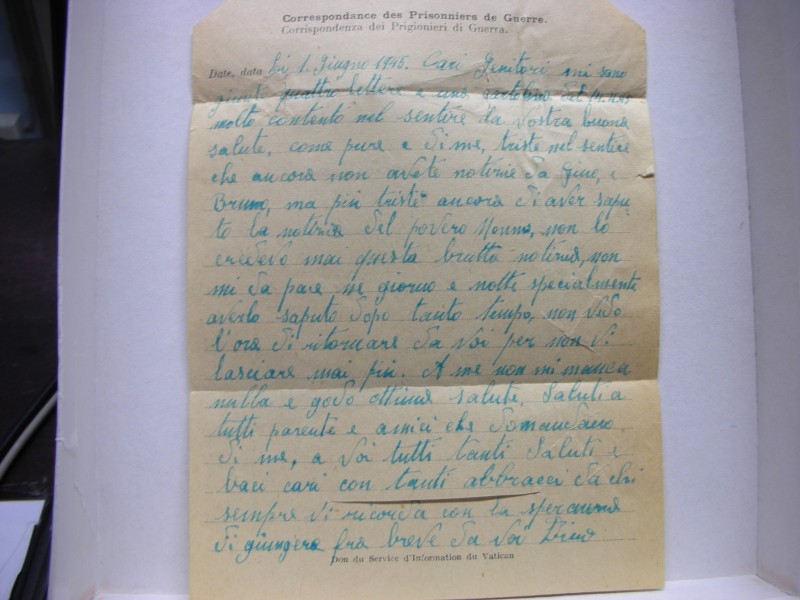 Correspondance des Prisonniers de Guerre.
Corrispondenza dei Prigionieri di Guerra.
Date, data Lì 1. Giugno 1945. Cari Genitori mi sono
giunte quattro lettere e una cartolina del
molto contento nel sentire la vostra buona
salute, come pure e di me, triste nel sentire
che ancora non avete notizie da Gino, e
Bruno, ma più triste ancora di aver sapu-
to la notizia del povero Nonno, non lo
credevo mai questa brutta notizia, non
mi da pace ne giorno e notte specialmente
averlo saputo dopo tanto tempo, non vedo
l'ora di ritornare da voi per non vi
lasciare mai più. A me non mi manca
nulla e godo ottima salute. Saluti a
tutti parente e amici che domandano
di me, a voi tutti tanti saluti e
baci cari con tanti abbracci da chi
sempre vi ricorda con la speranza
di giungere fra breve da voi Dino
Don du Service d'Information du Vatican